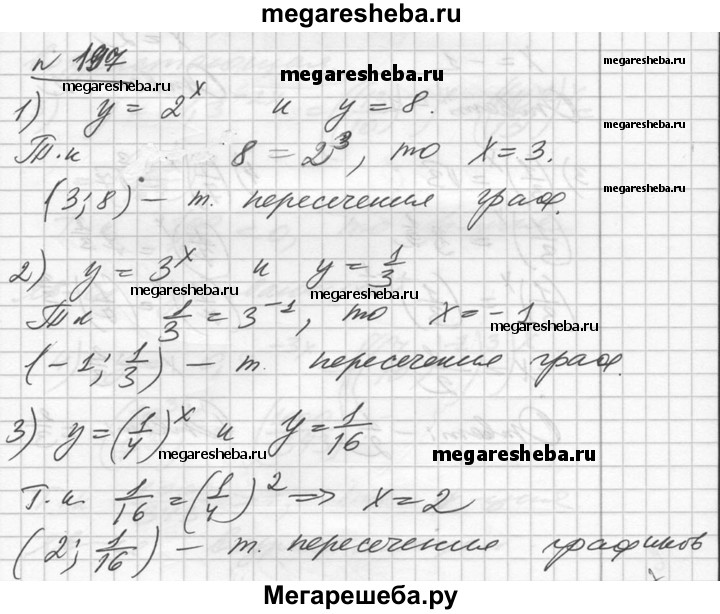 megaresheba.ru
№ 197
megaresheba.ru megaresheba.ru
1) y = 2^x и y = 8.
Т.к 8 = 2^3, то x = 3.
megaresheba.ru
(3; 8) – т. пересечения граф.
megaresheba.ru
2) y = 3^x и y = 1/3
megaresheba.ru megaresheba.ru
Т.к 1/3 = 3^-1, то x = -1
megaresheba.ru megaresheba.ru
(-1; 1/3) – т. пересечения граф.
3) y = (1/4)^x и y = 1/16
megaresheba.ru megaresheba.ru
Т.к. 1/16 = (1/4)^2 => x = 2
(2; 1/16) – т. пересечения графиков
Мегарешеба.ру